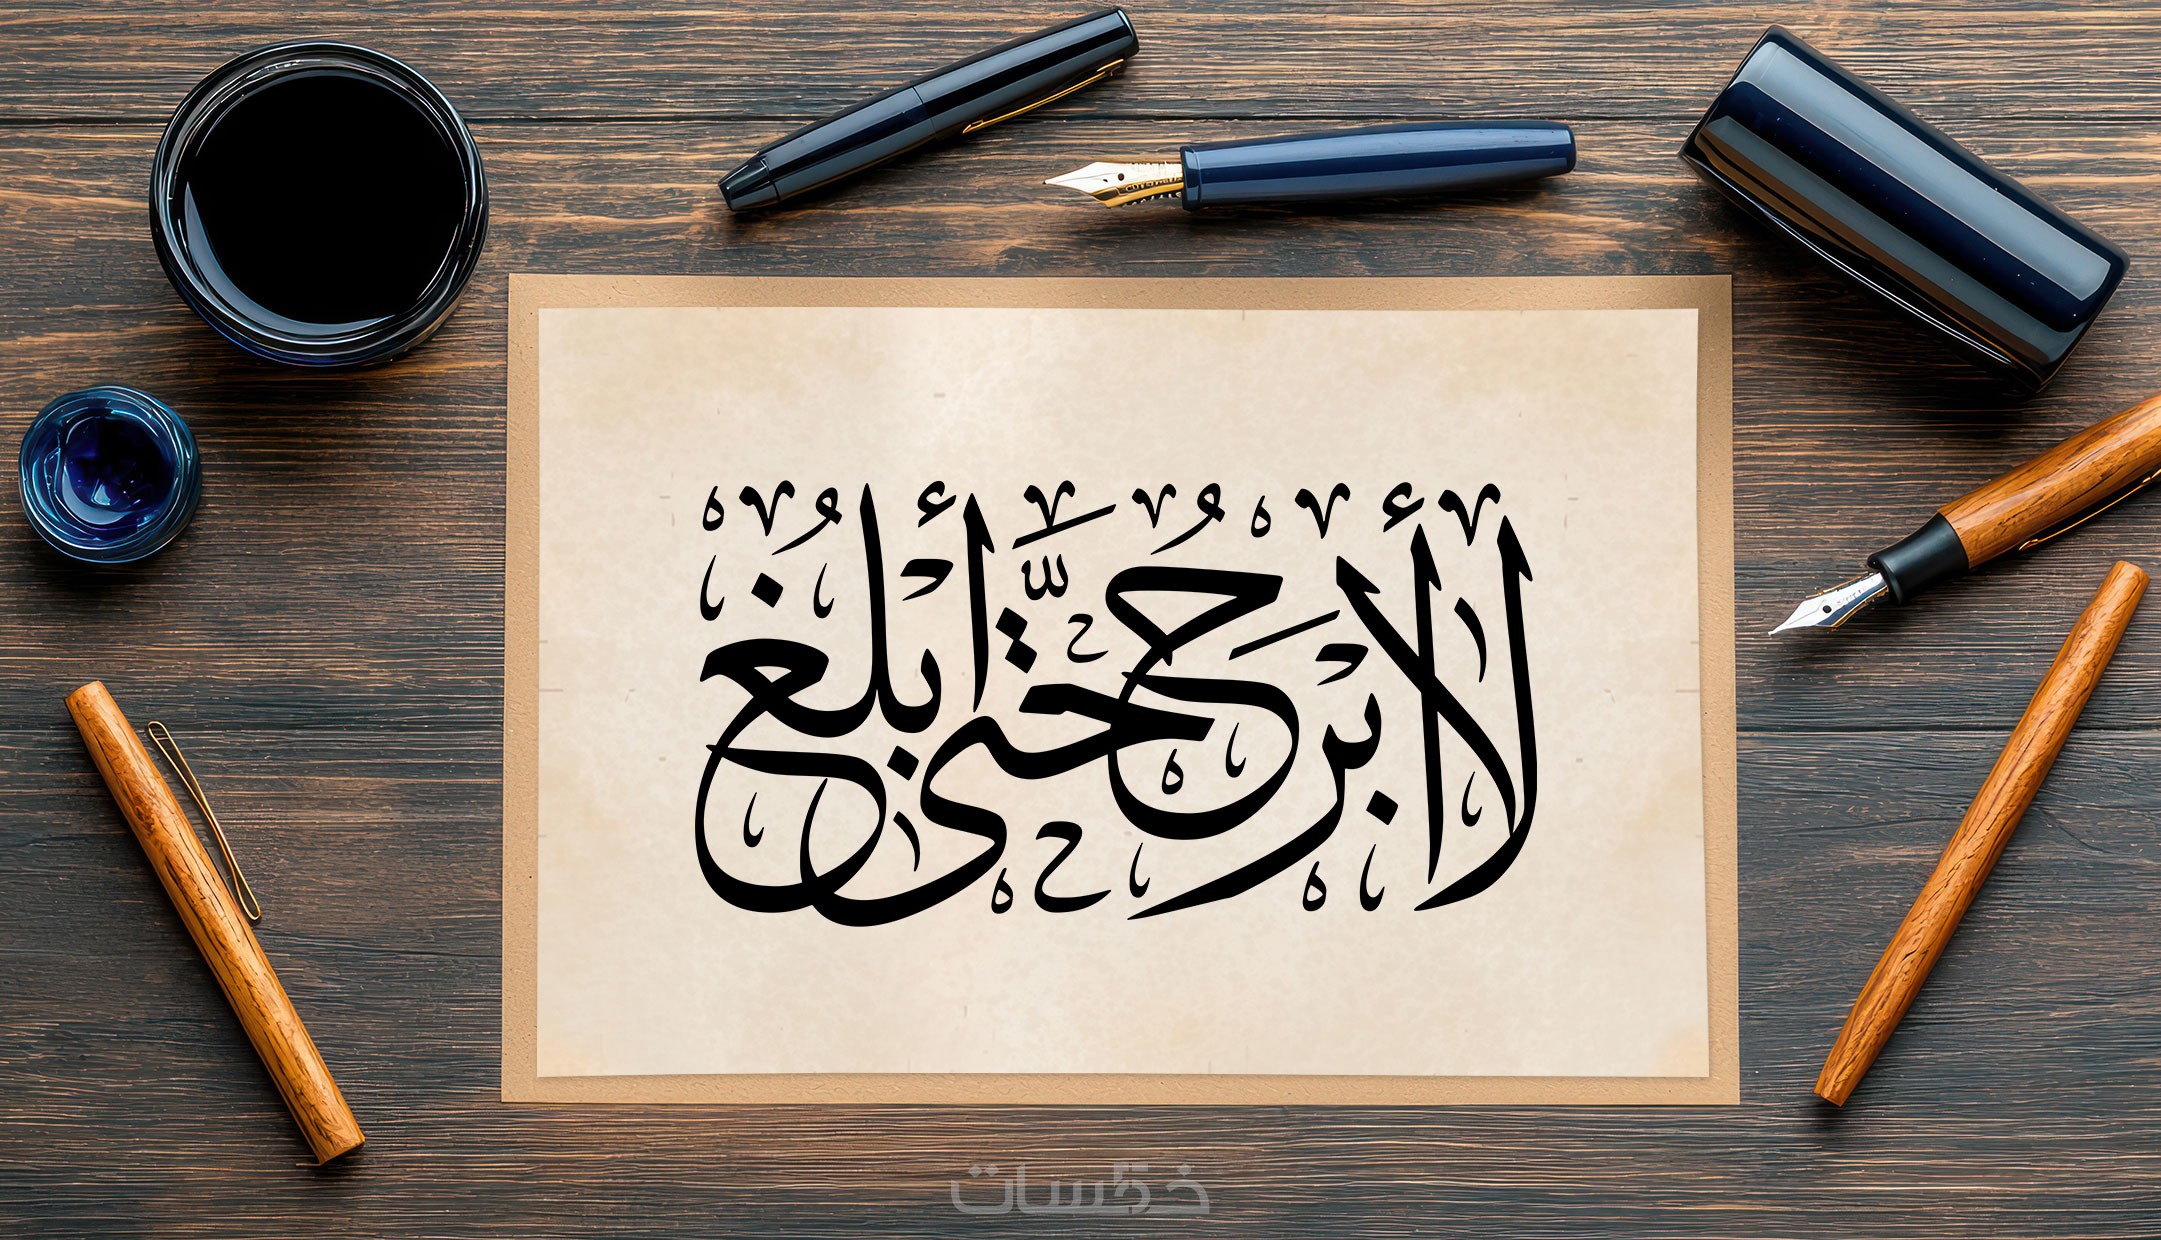 لا أبرحُ حتَّى أبلغُ
خمسات